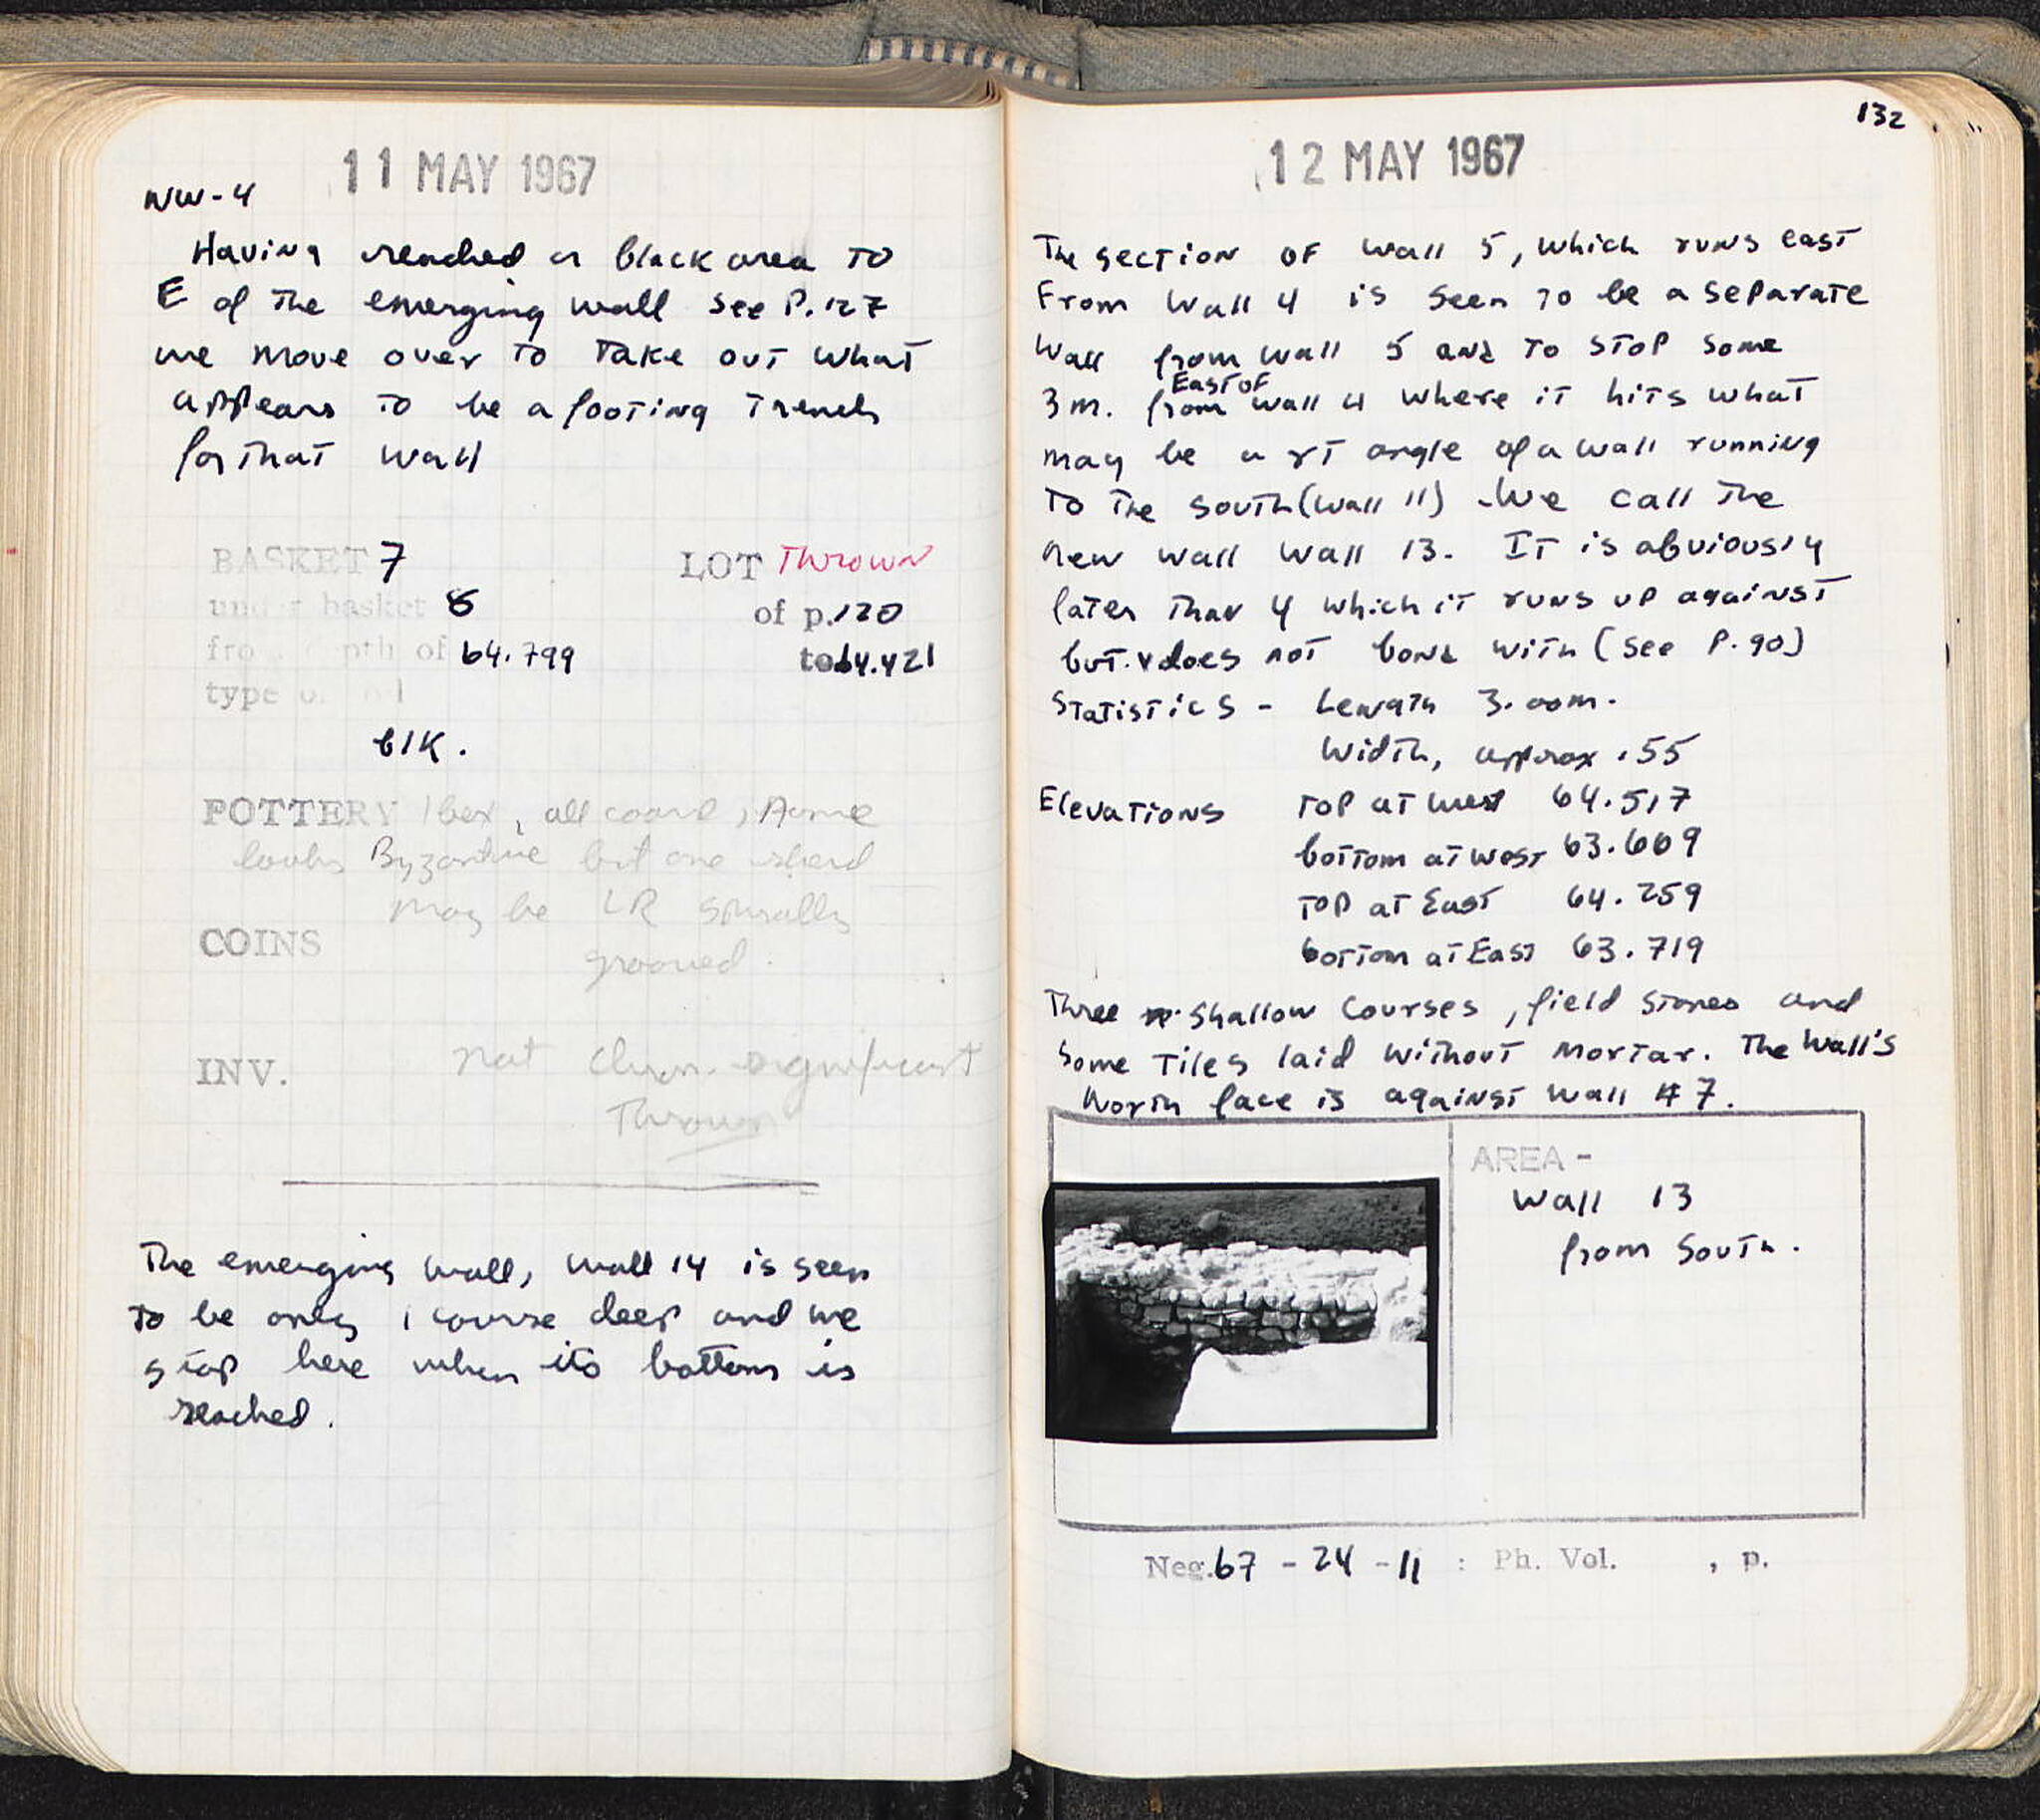 11 MAY 1967
NW-4
Having reached a black area to
E of the emerging wall see P.127
we move over to take out what
appears to be a footing trench
for that wall
BASKET 7 LOT Thrown
under basket 6 of p.120
from depth of 64.799 to 64.421
type of soil
blk.
POTTERY 1 box, all coarse, Some
looks Byzantine but one sherd
may be LR spirally
COINS grooved.
INV. not chron. significant
Thrown
The emerging wall, wall 14 is seen
to be only 1 course deep and we
stop here when its bottom is
reached.
132
12 MAY 1967
The section of wall 5, which runs east
From Wall 4 is seen to be a separate
Wall from wall 5 and to stop some
3m. from East of wall 4 where it hits what
may be a rt angle of a wall running
to the south (wall 11) We call the
new wall wall 13. It is abviously
later than 4 which it runs up against
but does not bond with (see P.90)
Statistics - Length 3.00m.
Width, approx .55
Elevations Top at West 64.517
bottom at west 63.669
Top at East 64.259
bottom at East 63.719
Three shallow courses, field stones and
some tiles laid without mortar. The Wall's
North face is against wall #7.
AREA -
Wall 13
from South.
Neg. 67 - 24 - 11 : Ph. Vol. , p.